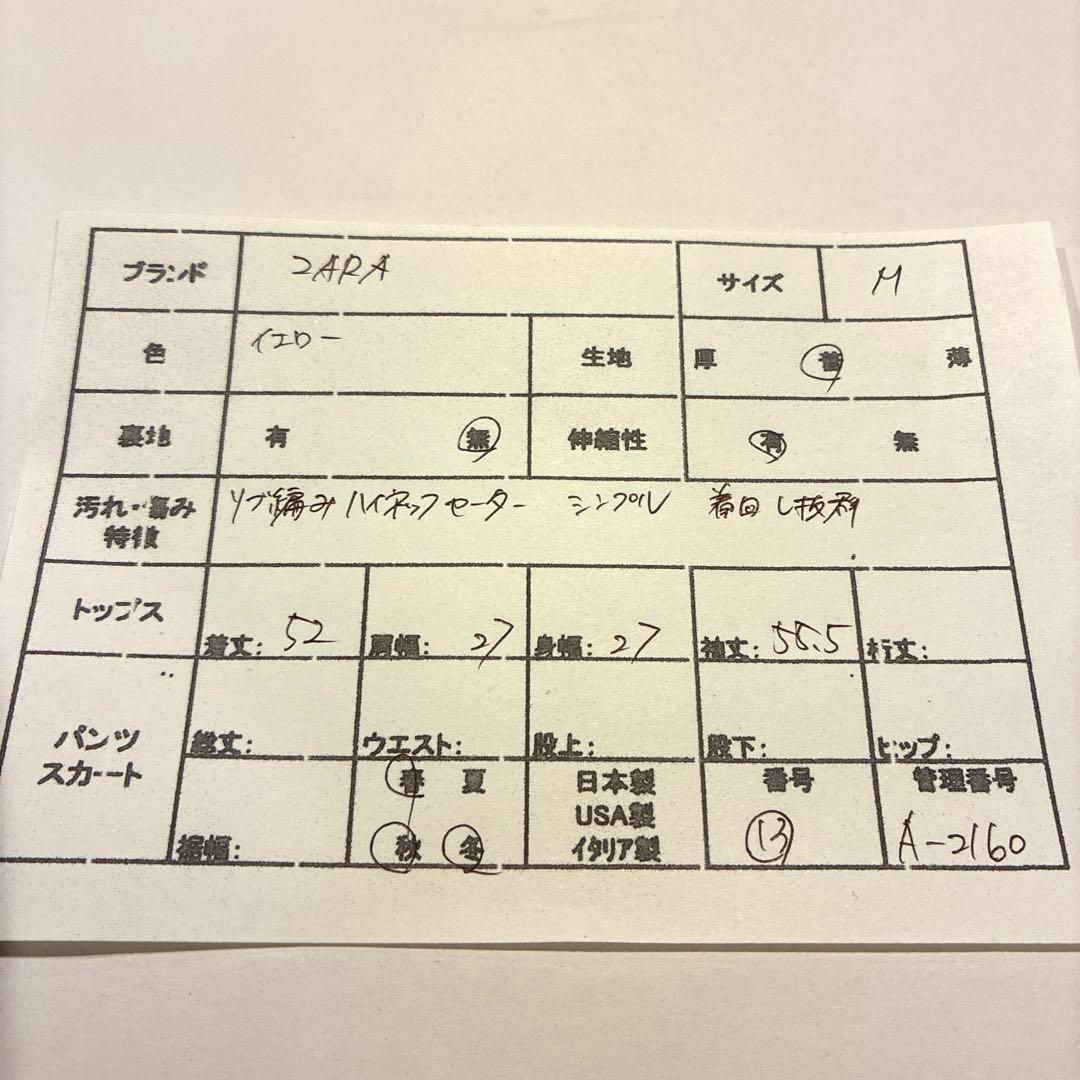 ブランド ZARA サイズ M
色 イエロー 生地 厚 普 薄
裏地 有 無 伸縮性 有 無
汚れ・傷み リブ編みハイネックセーター シンプル 着回し抜群
特徴
トップス 着丈: 52 肩幅: 27 身幅: 27 袖丈: 55.5 裄丈:
パンツ スカート 総丈: ウエスト: 股上: 股下: ヒップ:
裾幅: 春 夏 秋 冬 日本製 USA製 イタリア製 番号 13 管理番号 A-2160